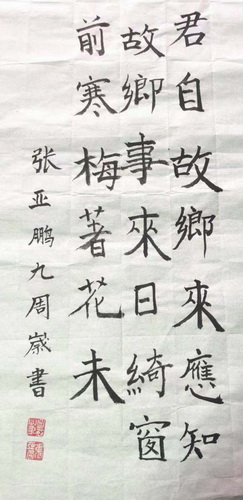 君自故鄉來應知
故鄉事來日綺窗
前寒梅著花未
张亚鹏九周嵗書